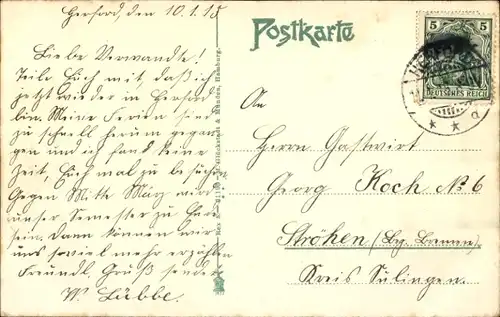 Herford, den 10.1.15
Postkarte
Liebe Verwandte!
Teile Euch mit daß ich
jetzt wieder in Herford
bin. Meine Ferien sind
zu schnell herum gegan-
gen und ich fand keine
Zeit, Euch mal zu besuchen.
Gegen Mitte März wird
unser Semester zu Ende
sein. Dann können wir
uns soviel mehr erzählen
Freundl. Gruß sendet
W. Lübbe.
5 5
DEUTSCHES REICH
An
Herrn Gastwirt
Georg Koch № 6
Ströhen (Bz. Bremen).
Kreis Sulingen.
& Munden, Hamburg.